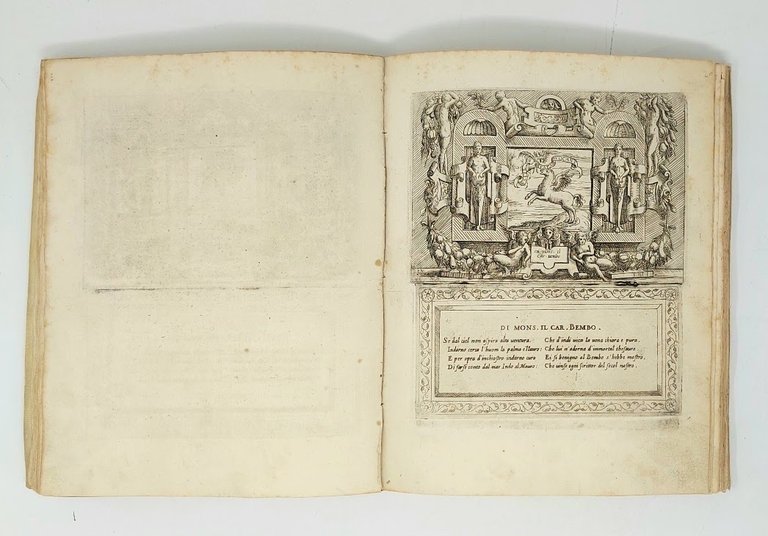 DI MONS. IL CAR. BEMBO.
Se dal ciel non aspira alta ventura.
Indarno cerca l'huom la palma e'l lauro:
E per opra d'inchiostro indarno cura
Di farse conto dal mar Indo al Mauro:
Che d'indi vien la vena chiara e pura.
Che lui n'adorna d'immortal thesauro
Et si benigno al Bembo s'hebbe mostro,
Che vinse ogni scrittor del secol nostro.